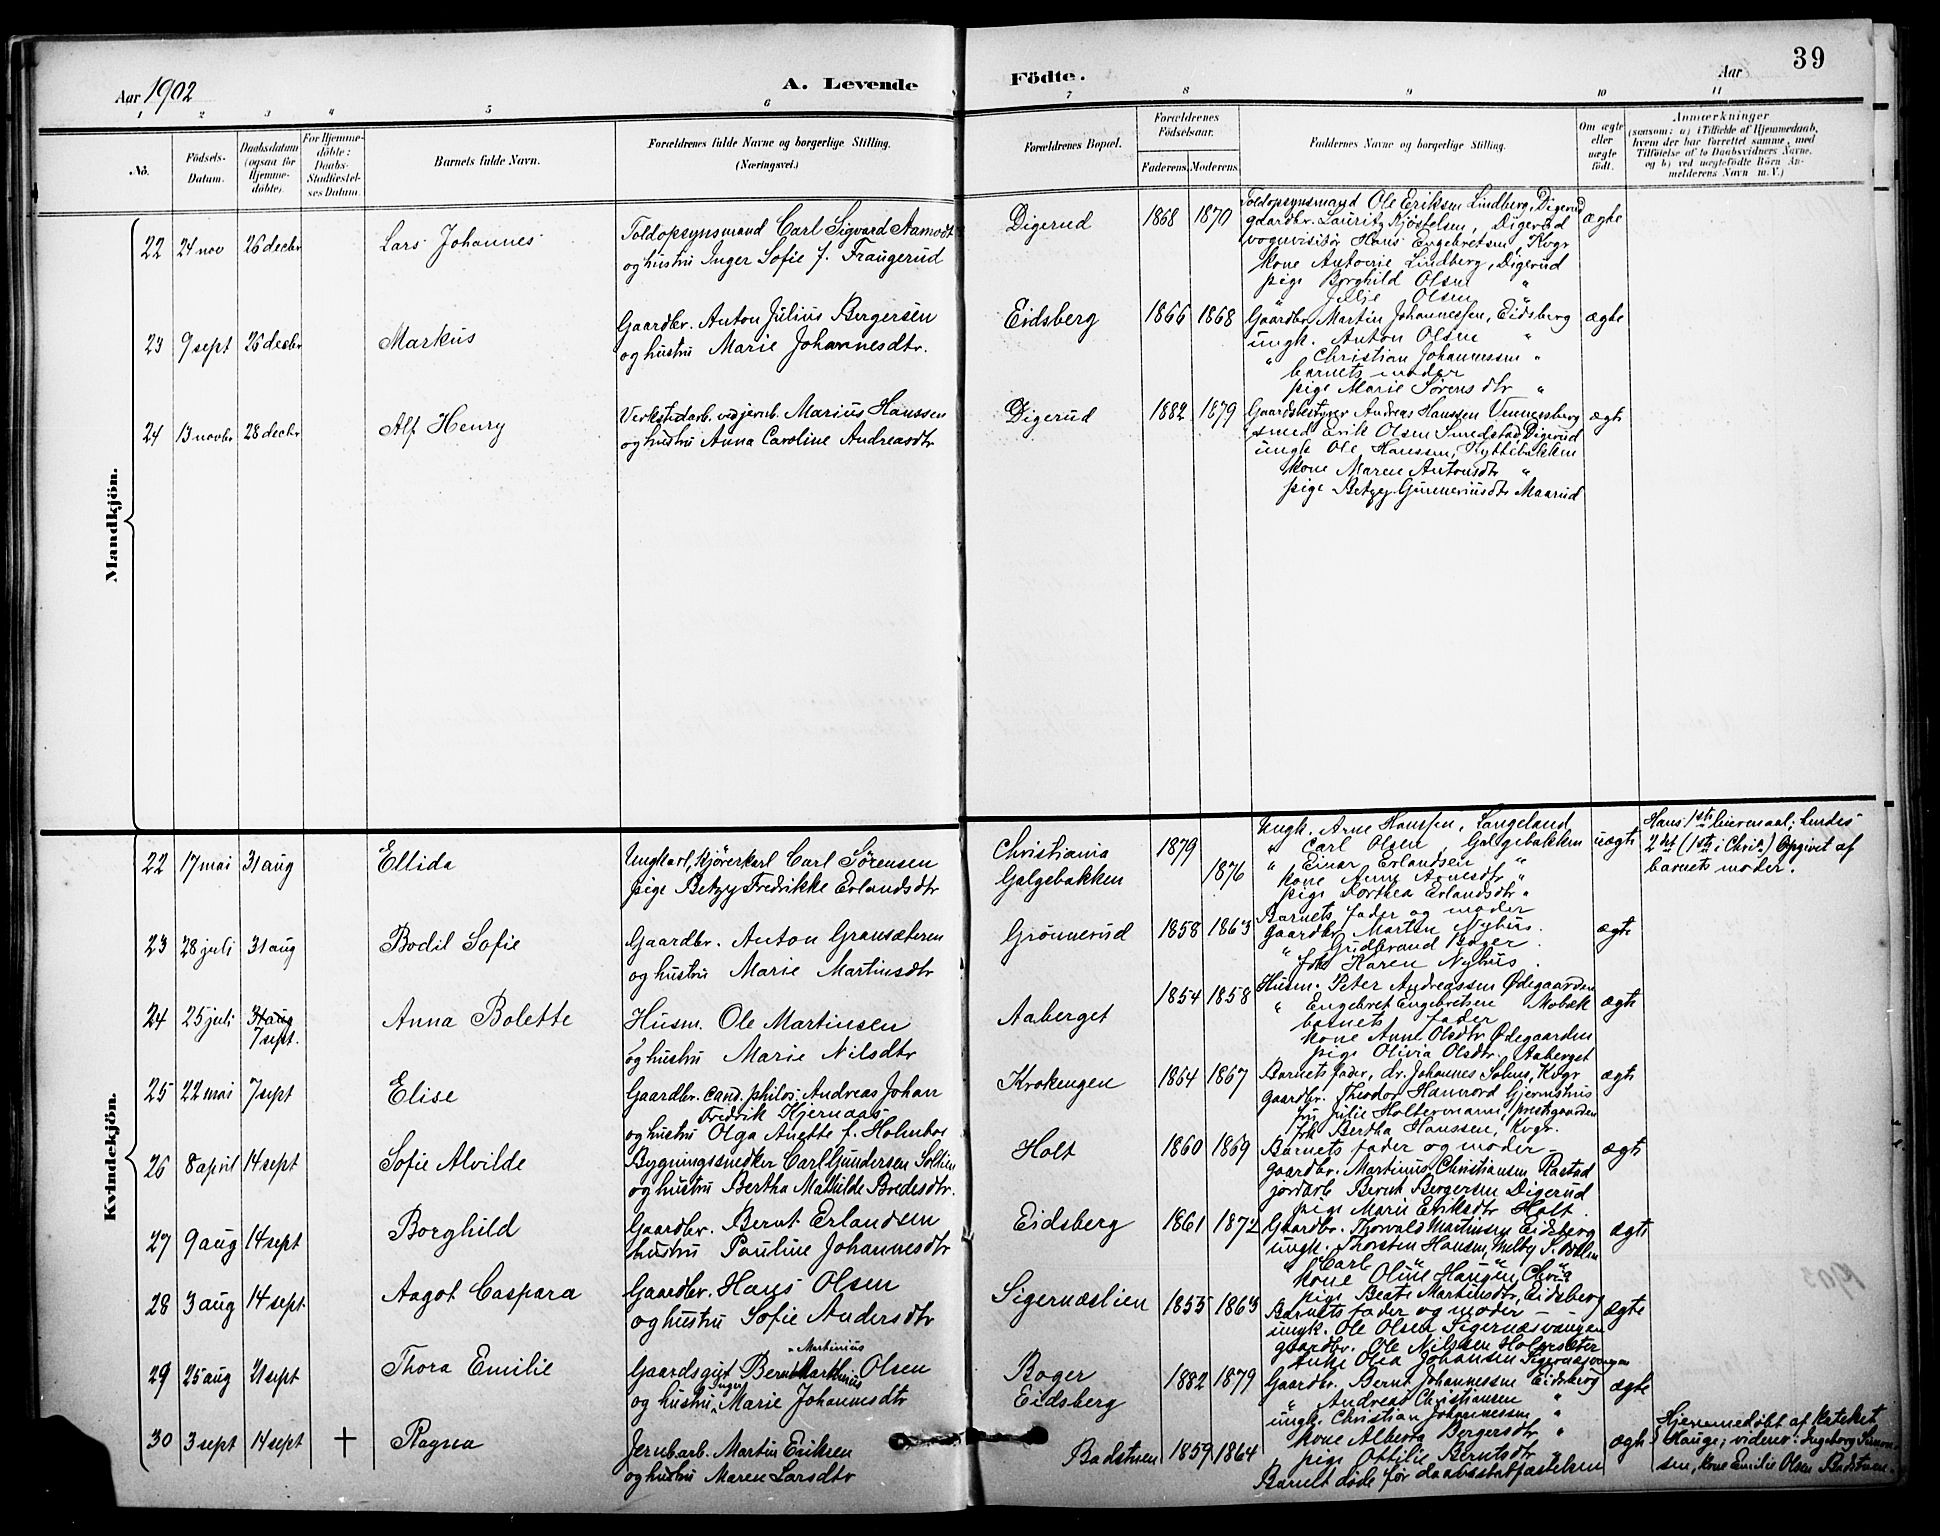 39
Aar 1902
A. Levende
Födte.
Aar
1 2 3 4 5 6
7 8 9 10 11
No.
Födsels-Datum.
Daabsdatum (ogsaa för Hjemme-döbte).
For Hjemme-döbte: Daabs-Stadfæstel-ses Datum.
Barnets fulde Navn.
Forældrenes fulde Navne og borgerlige Stilling. (Næringsvei.)
Forældrenes Bopæl.
Forældrenes Födselsaar.
Faderens. Moderens.
Faddernes Navne og borgerlige Stilling.
Om ægte eller uægte födt.
Anmærkninger
(saasom: a) i Tilfælde af Hjemmedaab, hvem der har forrettet samme, med Tilföielse af to Daabsvidners Navne. og b) ved uægtefödte Börn Anmelderens Navn m. V.)
Mandkjön.
22 24 nov 26 decbr Lars Johannes
Toldopsynsmand Carl Sigvard Aamodt
og hustru Inger Sofie f. Fraugerud
Digerud 1868 1870
Toldopsynsmand Ole Eriksen Lindberg, Digerud
gaardbr. Lauritz Kjøstelsen, Digerud
vognvisitör Hans Engebretsen, Kvgr
kone Antonie Lindberg, Digerud
pige Borghild Olsen "
" Julie Olsen "
ægte
23 9 sept 26 decbr Markus
Gaardbr. Anton Julius Bergersen
og hustru Marie Johannesdtr.
Eidsberg 1866 1868
Gaardbr. Martin Johannessen, Eidsberg
ungk. Anton Olsen "
" Christian Johannessen "
barnets moder
pige Marie Sørensdtr "
ægte
24 13 novbr 28 decbr Alf Henry
Verkstedarb. ved jernb. Marius Hanssen
og hustru Anna Caroline Andreasdtr
Digerud 1882 1879
Gaardsbestyrer Andreas Hanssen Vennersberg
smed Erik Olsen Smedstad, Digerud
ungk Ole Hanssen, Hyttebakken
kone Maren Antonsdtr "
pige Betzy Gunneriusdtr Maarud
ægte
Kvindekjön.
22 17 mai 31 aug Ellida
Ungkarl, kjörerkarl Carl Sørensen
pige Betzy Fredrikke Erlandsdtr
Christiania
Galgebakken
1879
1876
Ungk. Arne Hanssen, Langeland
" Carl Olsen, Galgebakken
" Einar Erlandsen "
kone Anne Arnesdtr "
pige Dorthea Erlandsdtr "
uægte
Hans 1ste leiermaal; hendes
2det (1ste i Chria) Opgivet af
barnets moder.
23 28 juli 31 aug Bodil Sofie
Gaardbr. Anton Gransæteren
og hustru Marie Martinsdtr
Grönnerud 1858 1863
Barnets fader og moder
gaardbr Marten Nyhus.
" Gudbrand Boger.
frk Karen Nyhus.
ægte
24 25 juli 31 aug 7 sept. Anna Bolette
Husm. Ole Martinsen
og hustru Marie Nilsdtr
Aaberget 1854 1858
Husm. Peter Andreassen Ødegaarden
" Engebret Engebretsen Mobæk
barnets fader
kone Anne Olsdtr Ødegaarden
pige Olivia Olsdtr. Aaberget
ægte
25 22 mai 7 sept Elise
Gaardbr. cand. philos. Andreas Johan
Fredrik Kjernaas
og hustru Olga Anette f. Holmboe
Krokengen 1864 1867
Barnets fader, dr. Johannes Solem, Kvgr
gaardbr. Theodor Hannord Gjermshus
fru Julie Holtermann, prestegaarden
frk Bertha Hanssen, Kvgr.
ægte
26 8 april 14 sept Sofie Alvilde
Bygningssnedker Carl Gundersen Soltien
og hustru Bertha Mathilde Bredesdtr.
Holt 1860 1869
Barnets fader og moder
gaardbr. Martinus Christiansen Rastad
jordarb Bernt Bergersen Digerud
pige Marie Eriksdtr Holt.
ægte
27 9 aug 14 sept Borghild
Gaardbr. Bernt Erlandsen
hustru Pauline Johannesdtr
Eidsberg 1861 1872
Gaardbr. Thorvald Martinsen Eidsberg
ungk. Thorsten Hansen, Melby S. Odalen
" Carl " "
kone Oline Haugen, Chria
pige Beate Martinsdtr, Eidsberg
ægte
28 3 aug 14 sept. Aagot Caspara
Gaardbr. Hans Olsen
og hustru Sofie Andersdtr
Sigernæslien 1855 1863
Barnets fader og moder
ungk. Ole Olsen Sigernæsvangen
gaardbr. Ole Nilssen Holmsæter
enke Olea Johansen Sigernæsvangen
ægte
29 25 aug 21 sept Thora Emilie
" Martinius
Gaardsgut Bernt Martinius Olsen
og hustru Inger Marie Johannesdtr
Boger
Eidsberg
1882 1879
Gaardbr. Bernt Johannessen Eidsberg
" Andreas Christiansen "
ungk. Christian Johannessen "
kone Alberta Bergersdtr "
pige Ottilie Berntsdtr "
ægte
30 3 sept 14 sept + Ragna
Jernbarb. Martin Eriksen
og hustru Maren Larsdtr
Badstuen 1859 1864
Barnet døde før daabsstadfæstelsen
ægte
Hjemmedøbt af kateket
Hauge; vidner: Ingeborg Simon-
sen, kone Emilie Olsen Badstuen.